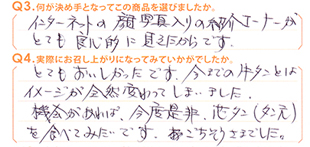 Q3.何が決め手となってこの商品を選びましたか。
インターネットの顔写真入りの紹介コーナーが
とても良心的に見えたからです。
Q4.実際にお召し上がりになってみていかがでしたか。
とてもおいしかったです。今までの牛タンとは
イメージが全然変わってしまいました。
機会があれば、今度是非、芯タン(タン元)
を食べてみたいです。おごちそうさまでした。